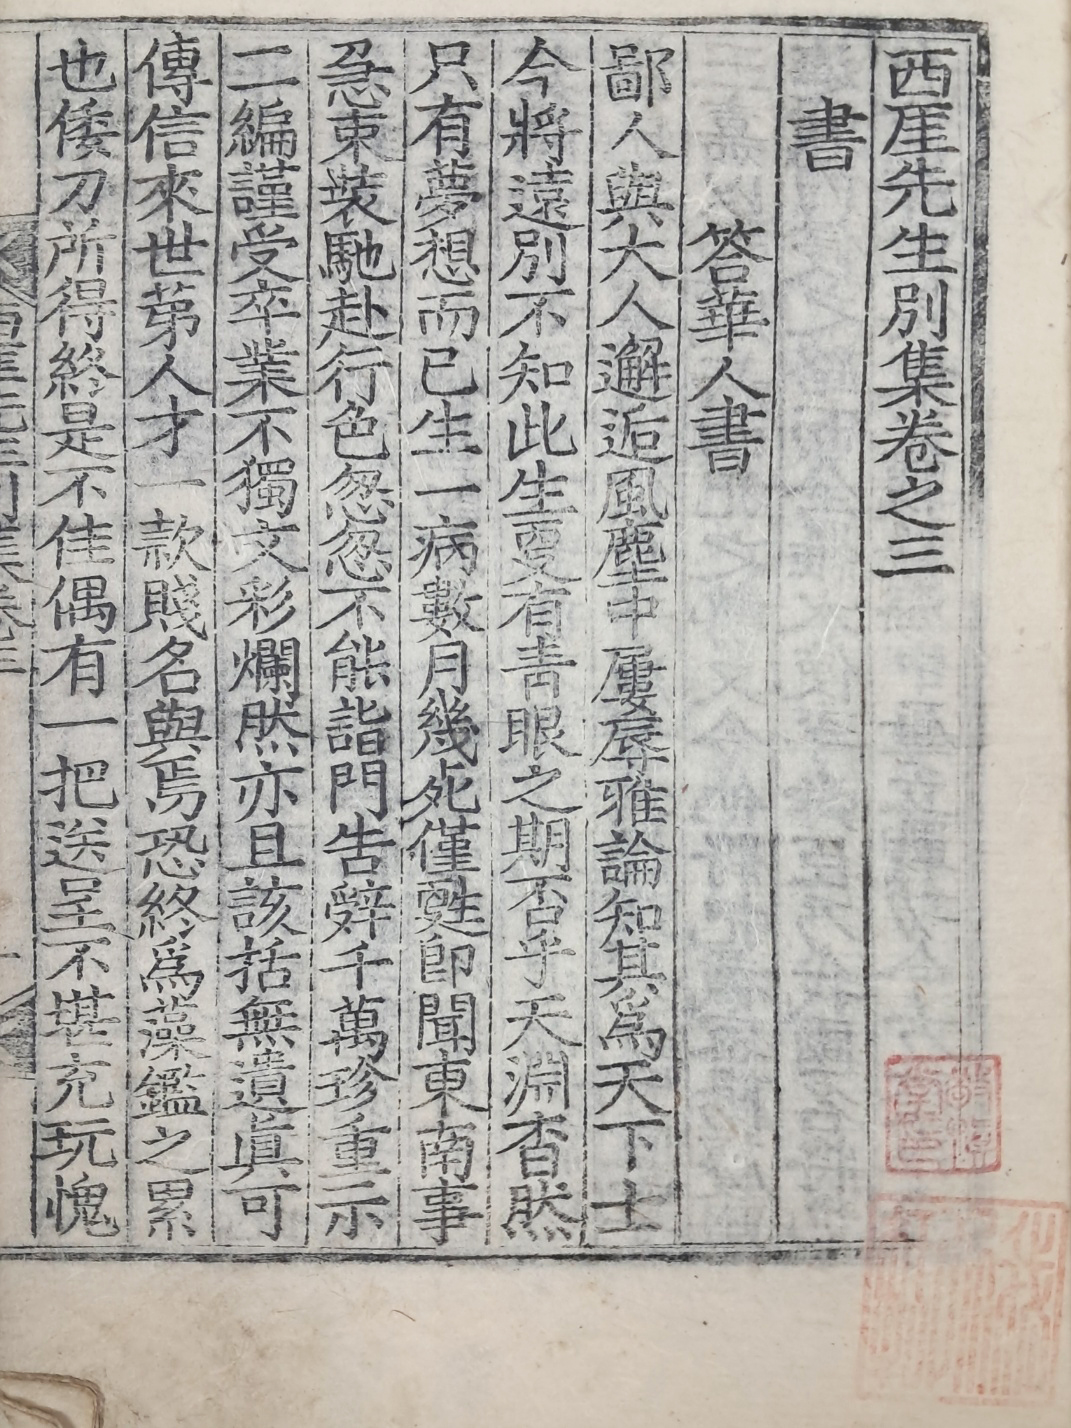 西厓先生別集卷之三
書
答華人書
鄙人與大人邂逅風塵中屢辱雅論知其爲天下士
今將遠別不知此生更有靑眼之期否乎天淵杳然
只有夢想而已生一病數月幾死僅甦卽聞東南事
急束裝馳赴行色怱怱不能詣門告辭千萬珍重示
二編謹受卒業不獨文彩爛然亦且該括無遺眞可
傳信來世第人才一款賤名與焉恐終爲藻鑑之累
也倭刀所得終是不佳偶有一把送呈不堪充玩愧